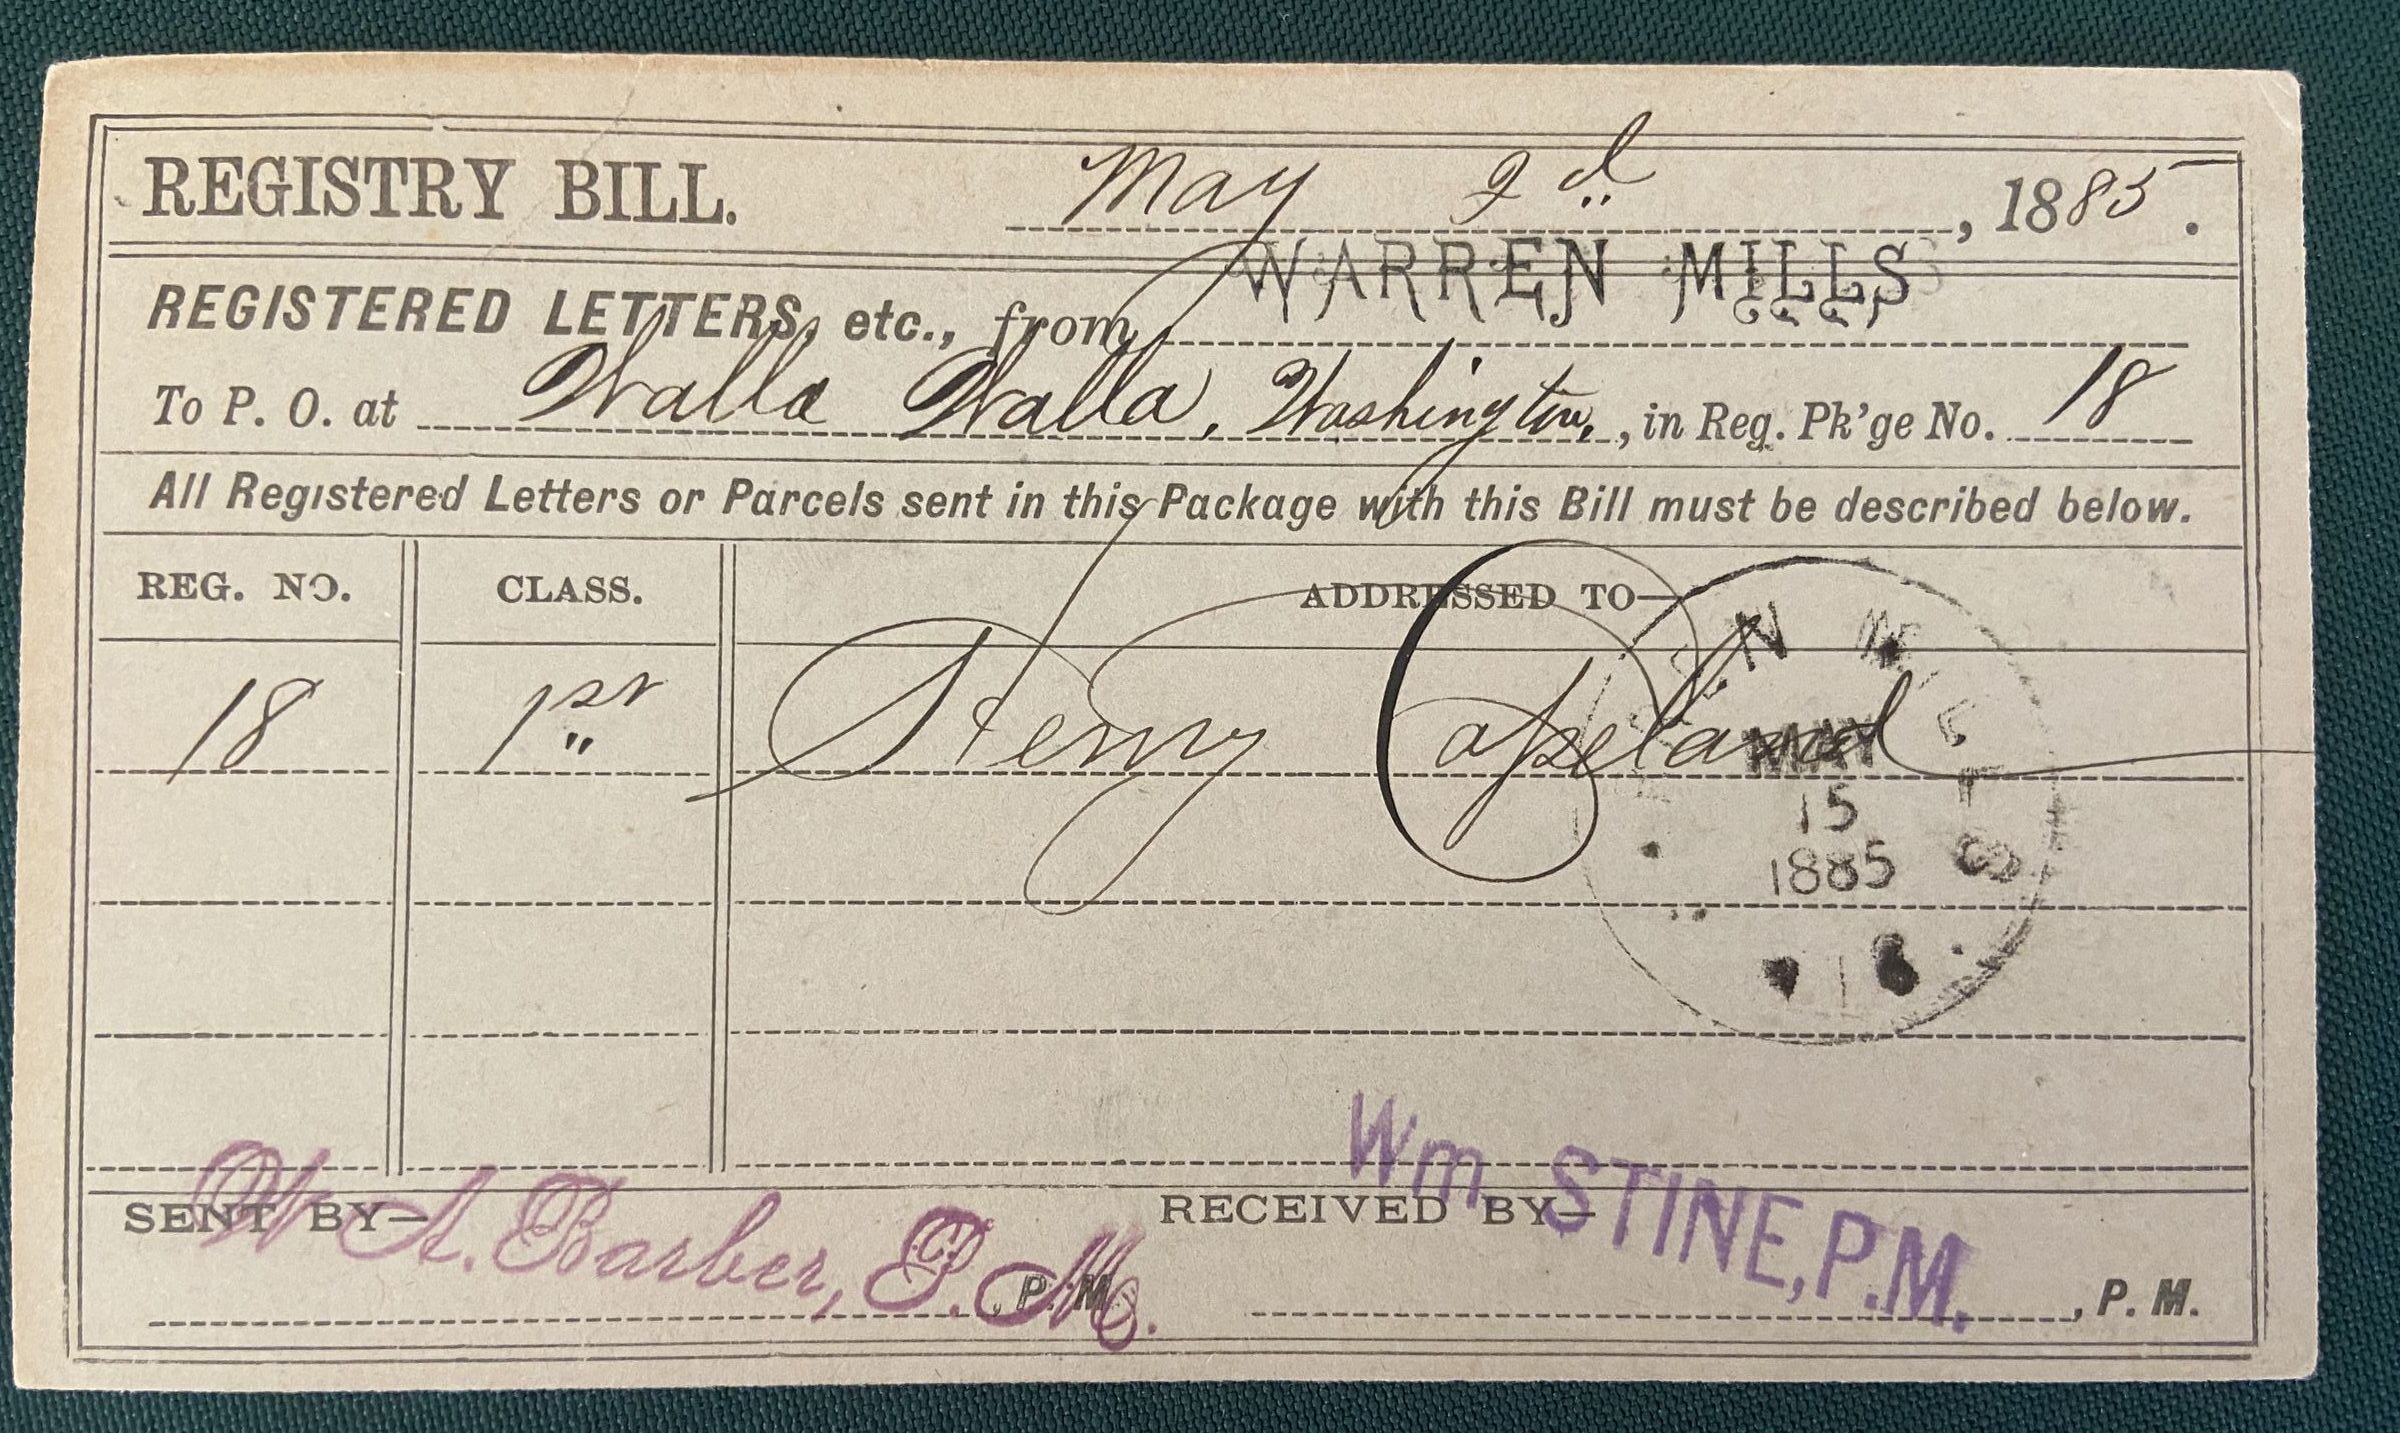 REGISTRY BILL. May 2d, 1885.
WARREN MILLS
REGISTERED LETTERS, etc., from
To P. O. at Walla Walla, Washington, in Reg. Pk'ge No. 18
All Registered Letters or Parcels sent in this Package with this Bill must be described below.
REG. NO. CLASS. ADDRESSED TO—
18 1st Henry Copeland
MAY
15
1885
Wm STINE, P.M.
SENT BY— RECEIVED BY—
W A. Barber, P. M.
, P. M. , P. M.